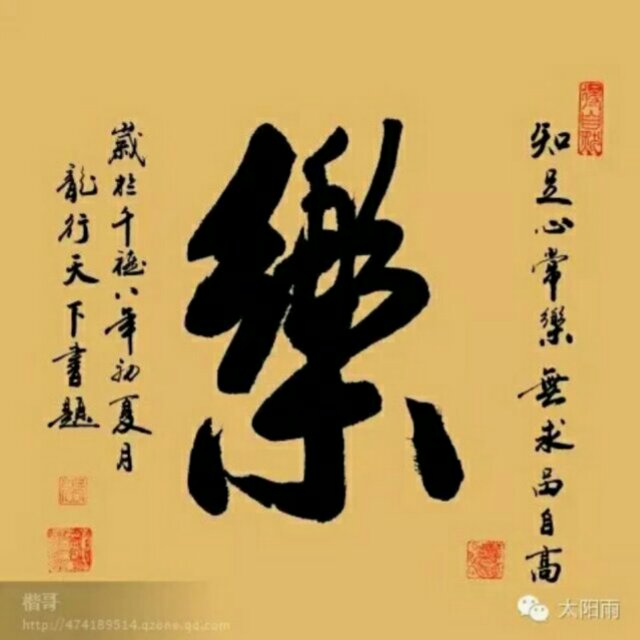 知足心常樂 無求品自高
樂
歲於千禧八年初夏月
龍行天下書題
楷哥
http://474189514.qzone.qq.com
太阳雨